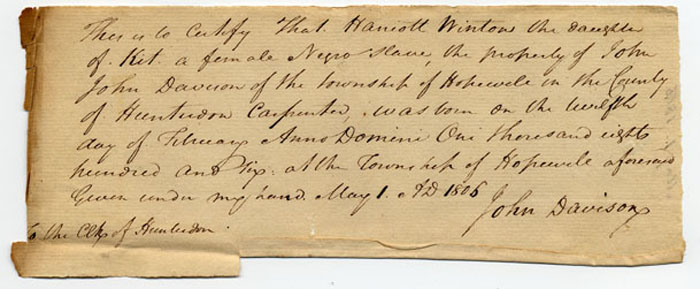 This is to Certify That Harriott Wintons the daughter
of Kit a female Negro slave, the property of John
John Davison of the township of Hopewele in the County
of Hunterdon Carpenter, was born on the twelfth
day of February Anno Domini One thousand eight
hundred and six: at the Township of Hopewele aforesaid
Given under my hand. May 1. AD 1806
John Davison
To the Clk of Hunterdon.